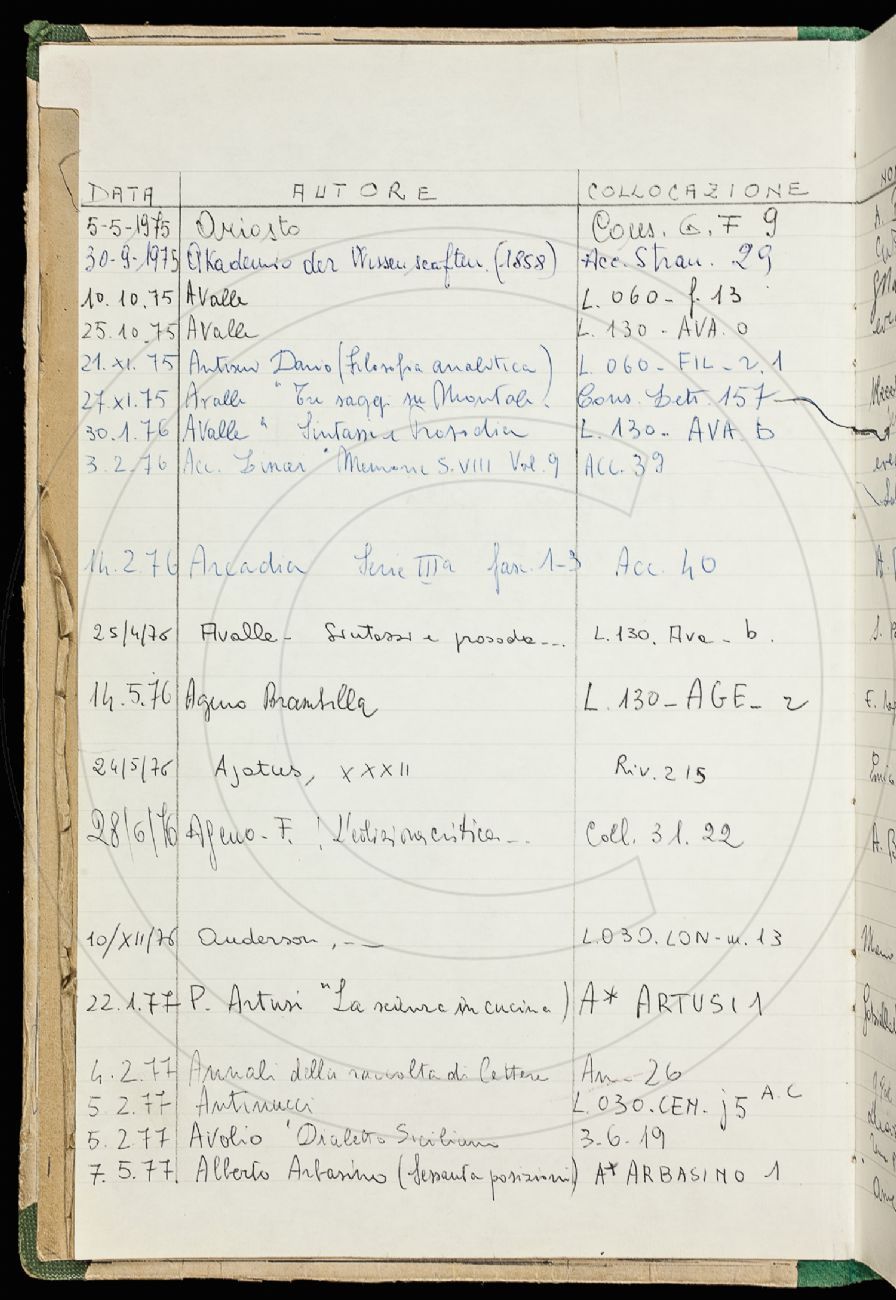 DATA AUTORE COLLOCAZIONE
5-5-1975 Ariosto Cons. G. F 9
30-9-1975 Akademie der Wissenscaften (1858) Acc. Stran. 29
10.10.75 Avalle L. 060 - f. 13
25.10.75 Avalle L. 130 - AVA. 0
21.XI.75 Antiseri Dario (Filosofia analitica) L. 060 - FIL - 2.1
27.XI.75 Avalle "Tre saggi su Montale. Cons. Lett. 157
30.1.76 Avalle " Sintassi e Prosodia L. 130. AVA b
3.2.76 Acc. Lincei "Memorie S. VIII Vol. 9 ACC. 39
14.2.76 Arcadia Serie IIIa fasc. 1-3 Acc. 40
25/4/76 Avalle - Sintassi e prosodia... L. 130. Ava - b.
14.5.76 Ageno Brambilla L. 130 - AGE - 2
24/5/76 Ajatus, XXXII Riv. 215
28/6/76 Ageno - F. : L'edizione critica... Coll. 31. 22
10/XII/76 Anderson, -- L.030.LON-m.13
22.1.77 P. Artusi "La scienza in cucina) A* ARTUSI 1
4.2.77 Annali della raccolta di lettere Ann 26
5.2.77 Antinucci L.030.CEN. j5 A.C
5.2.77 Avolio "Dialetto Siciliano 3.6.19
7.5.77 Alberto Arbasino (Sessanta posizioni) A* ARBASINO 1